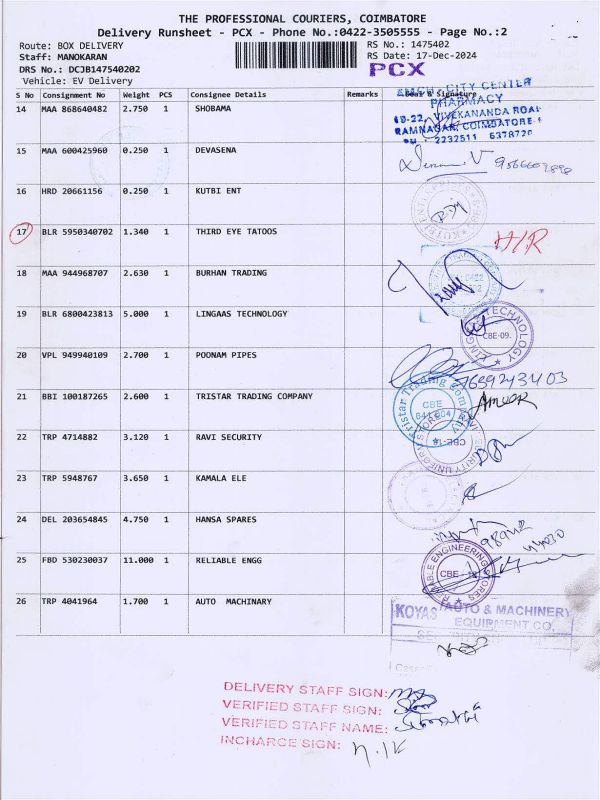 THE PROFESSIONAL COURIERS, COIMBATORE
Delivery Runsheet - PCX - Phone No.:0422-3505555 - Page No.:2
Route: BOX DELIVERY RS No.: 1475402
Staff: MANOKARAN RS Date: 17-Dec-2024
DRS No.: DCJB147540202 PCX
Vehicle: EV Delivery
S No Consignment No Weight PCS Consignee Details Remarks Seal & Signature
CITY CENTER
PHARMACY
VIVEKANANDA ROAD
RAMNAGAR, COIMBATORE-
2232511 6378720
14 MAA 868640482 2.750 1 SHOBAMA
15 MAA 600425960 0.250 1 DEVASENA
16 HRD 20661156 0.250 1 KUTBI ENT
17 BLR 5950340702 1.340 1 THIRD EYE TATOOS H/R
18 MAA 944968707 2.630 1 BURHAN TRADING
19 BLR 6800423813 5.000 1 LINGAAS TECHNOLOGY
TECHNOLOGY
CBE-09.
20 VPL 949940109 2.700 1 POONAM PIPES
21 BBI 100187265 2.600 1 TRISTAR TRADING COMPANY
Tristar Trading Company
CBE
22 TRP 4714882 3.120 1 RAVI SECURITY
SECURITY UNIFORM STORE
23 TRP 5948767 3.650 1 KAMALA ELE
24 DEL 203654845 4.750 1 HANSA SPARES
25 FBD 530230037 11.000 1 RELIABLE ENGG
RELIABLE ENGINEERING STORES
CBE
26 TRP 4041964 1.700 1 AUTO MACHINARY
KOYAS AUTO & MACHINERY
EQUIPMENT CO.
DELIVERY STAFF SIGN:
VERIFIED STAFF SIGN:
VERIFIED STAFF NAME:
INCHARGE SIGN: